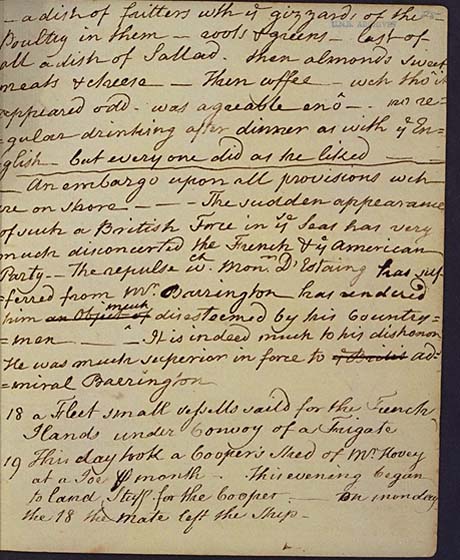 – a dish of fritters wth yͤ gizzard of the
Poultry in them – roots & greens – last of
all a dish of Sallad. then almonds sweet
meats & cheese – Then coffee – wch tho it
appeared odd. was agreable enô –. no re=
gular drinking after dinner as with yͤ En=
glish – but every one did as he liked – –
– An embargo upon all provisions wch
are on shore – – – The sudden appearance
of such a British Force in yͤ Seas has very
much disconcerted the French & yͤ American
Party – the repulse wͨͪ Monͬ D'Estaing has suf
=ferred from Mr Barrington has rendered
him an Object of much disesteemed by his Country=
=men – – It is indeed much to his dishonor
He was much superior in force to ad=
=miral Barrington
18 a Fleet small vessells saild for the French
Ilands under Convoy of a Frigate
19 This day took a Cooper's Shed of Mr Hovey
at a Joe ℔ month – This evening began
to land Stuff for the Cooper – on monday
the 18 the mate left the Ship –